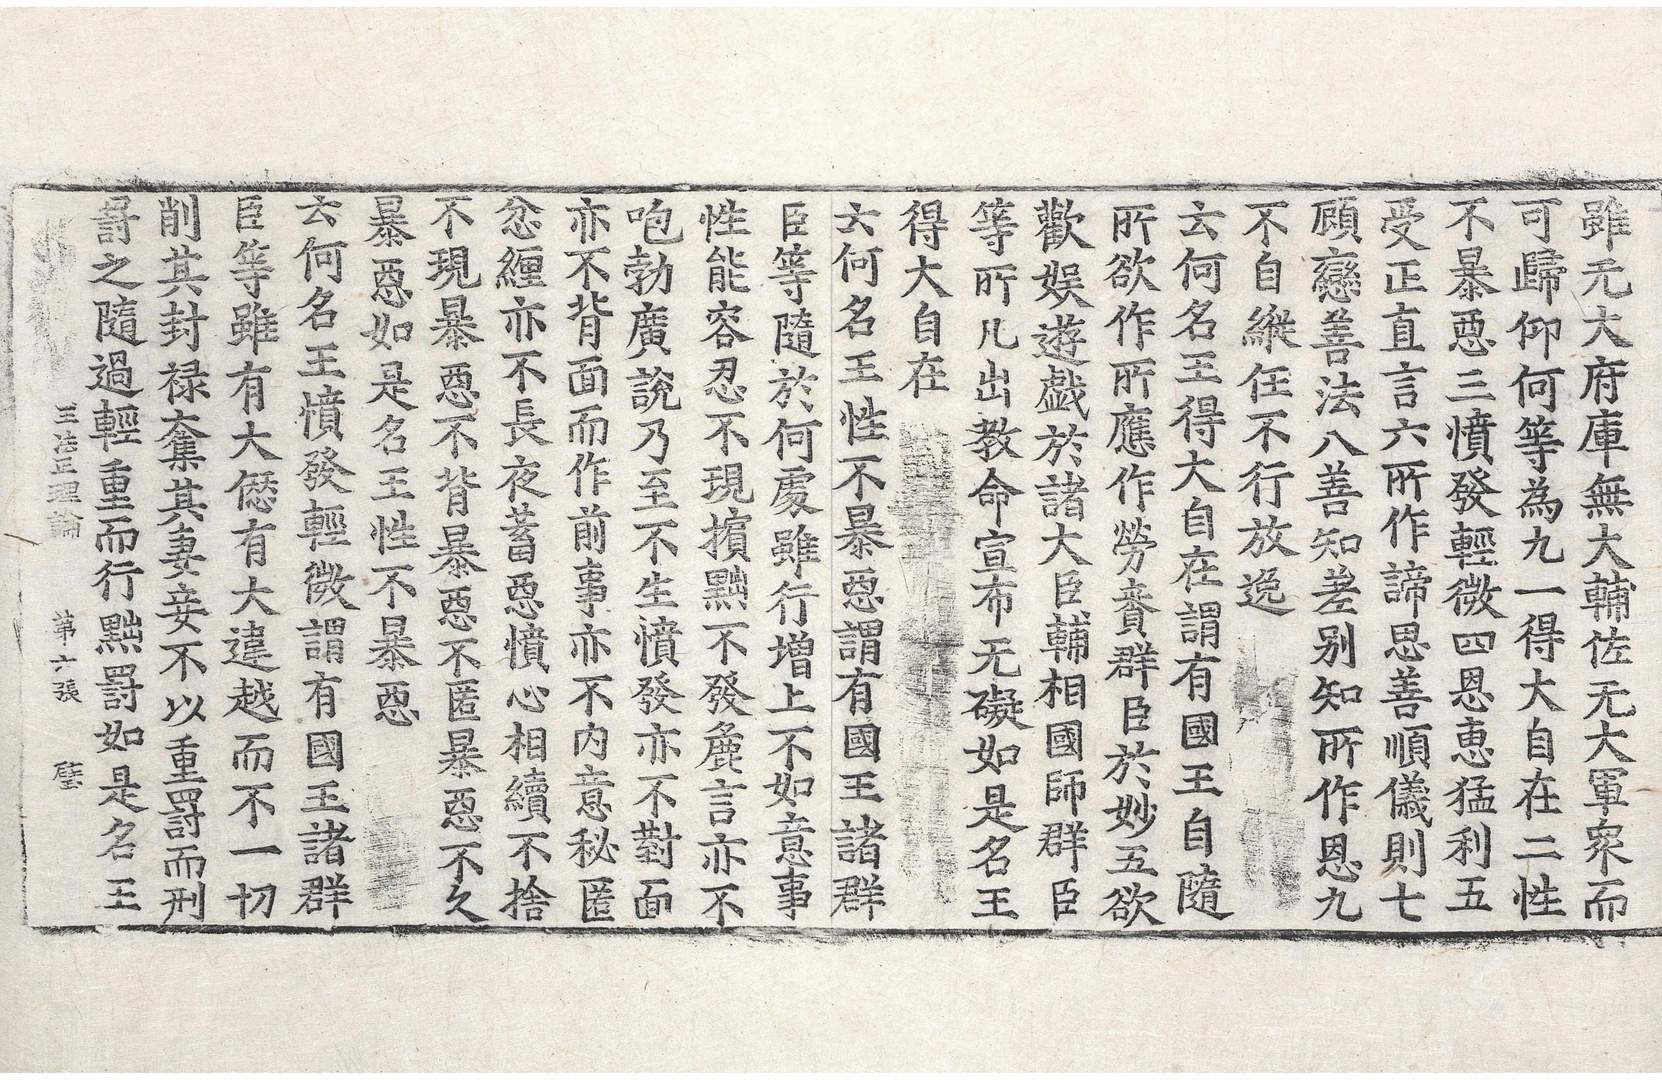 雖无大府庫無大輔佐无大軍衆而
可歸仰何等為九一得大自在二性
不暴惡三憤發輕微四恩惠猛利五
受正直言六所作諦思善順儀則七
顧戀善法八善知差别知所作恩九
不自縱任不行放逸
云何名王得大自在謂有國王自隨
所欲作所應作勞賚群臣於妙五欲
歡娱遊戲於諸大臣輔相國師群臣
等所凡出教命宣布无礙如是名王
得大自在
云何名王性不暴惡謂有國王諸群
臣等隨於何處雖行增上不如意事
性能容忍不現擯黜不發麁言亦不
咆勃廣說乃至不生憤發亦不對面
亦不背面而作前事亦不内意秘匿
忿纒亦不長夜蓄惡憤心相續不捨
不現暴惡不背暴惡不匿暴惡不久
暴惡如是名王性不暴惡
云何名王憤發輕微謂有國王諸群
臣等雖有大𠎝有大違越而不一切
削其封禄奪其妻妾不以重罸而刑
罸之隨過輕重而行黜罸如是名王
王法正理論 第六張 璧